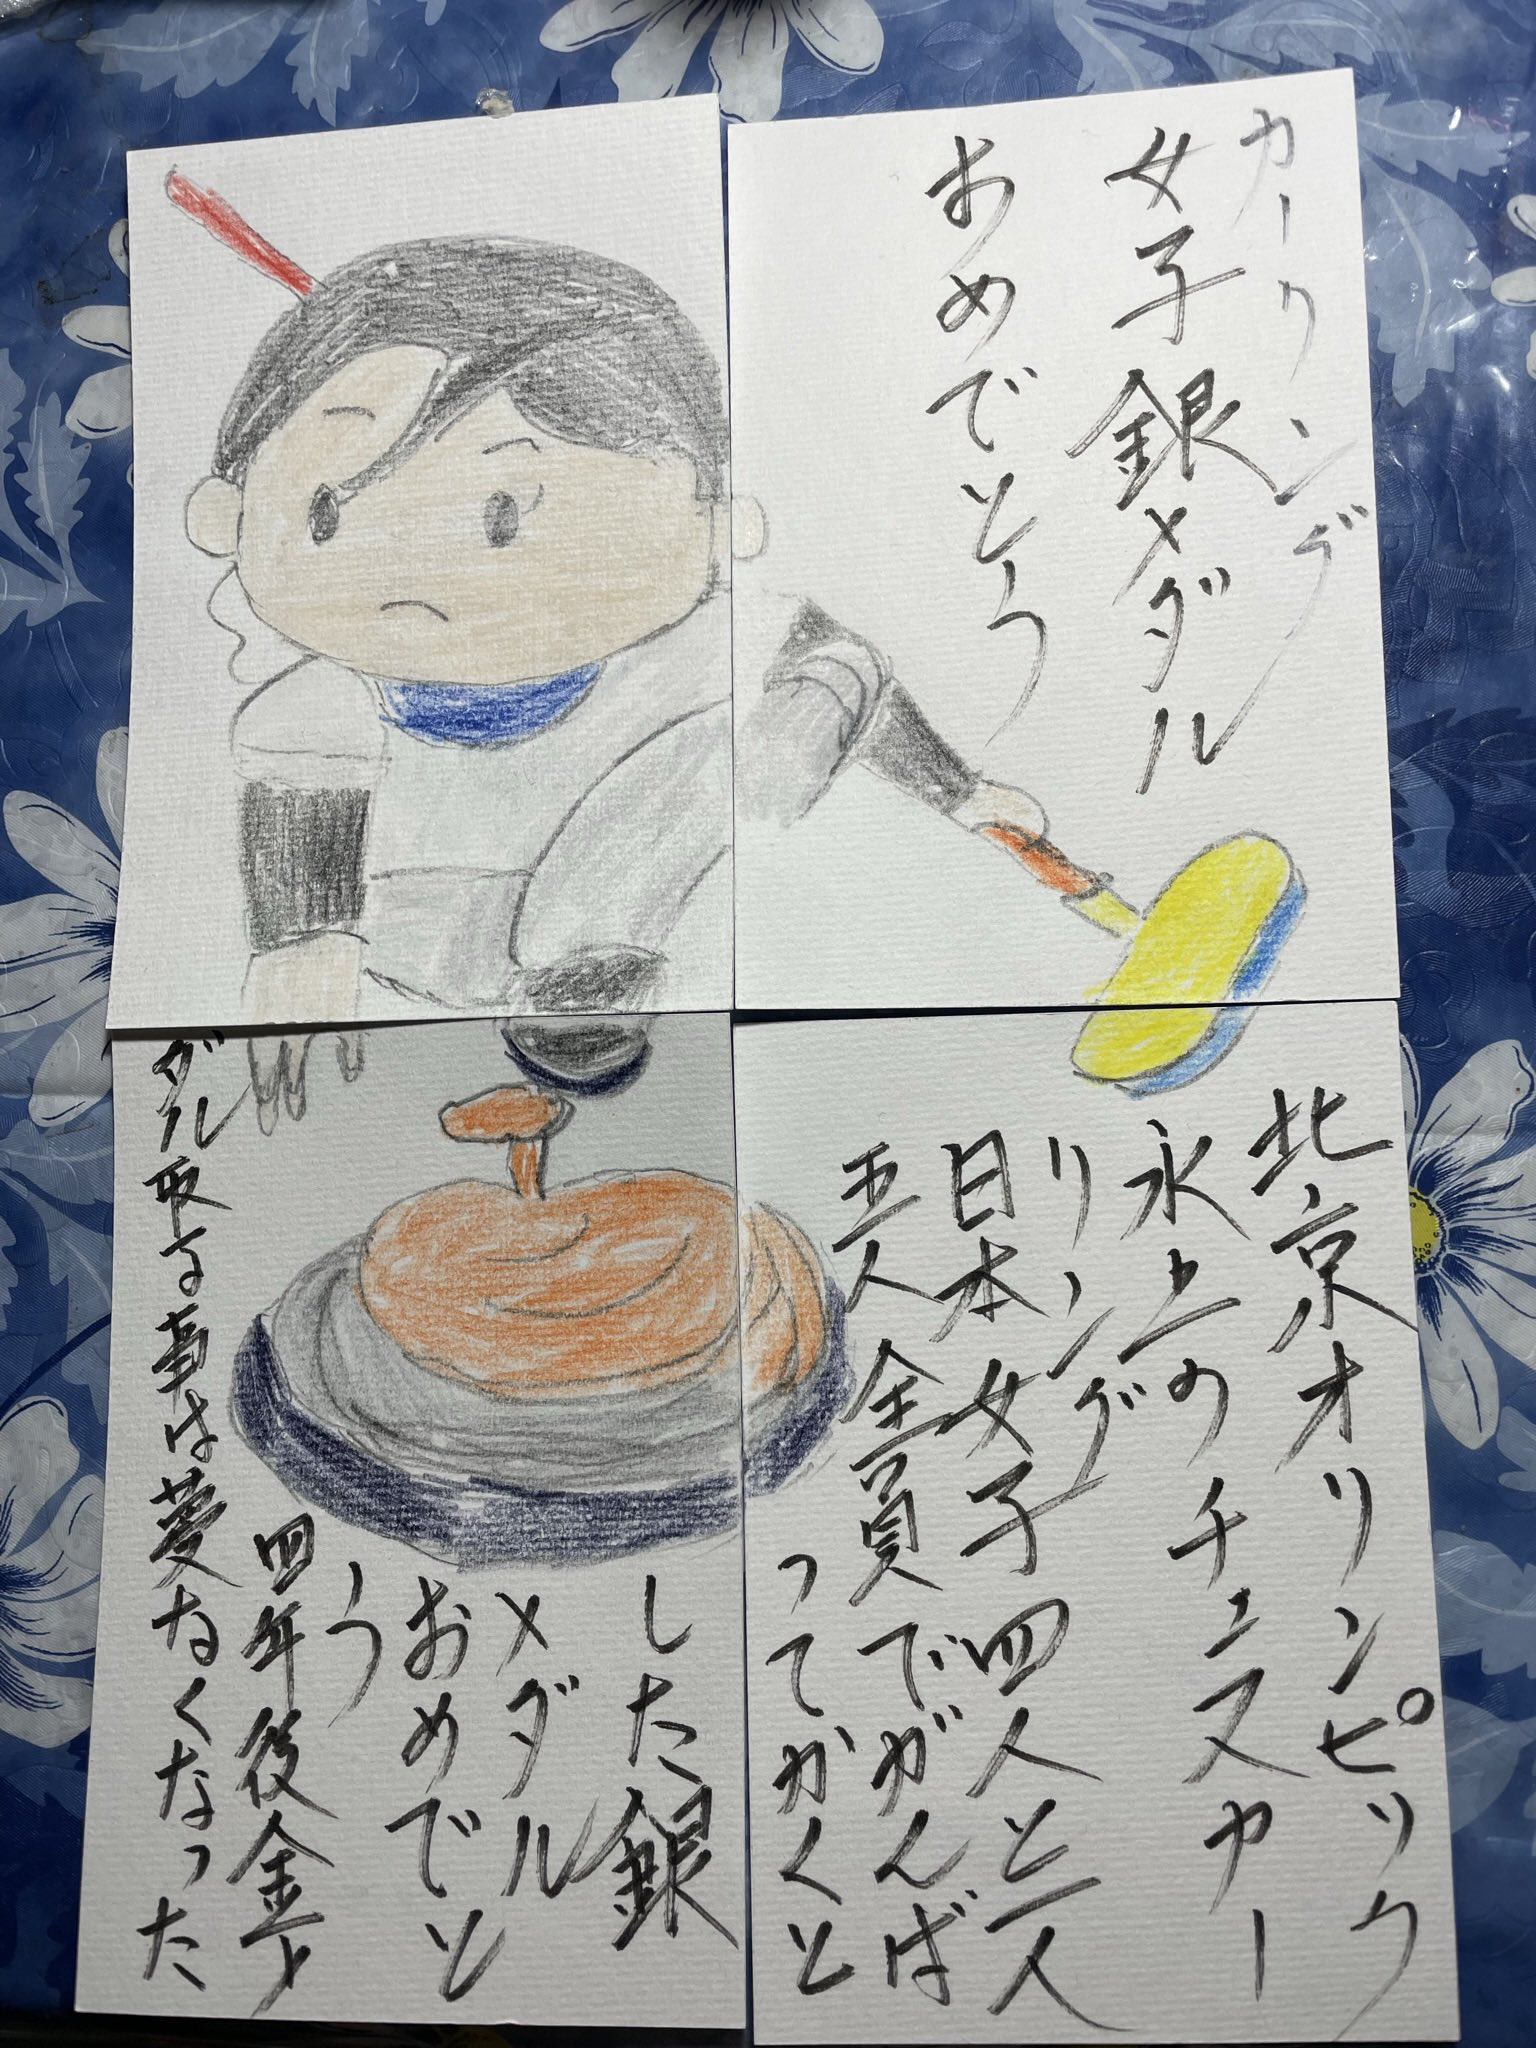 カーリング
女子銀メダル
おめでとう
北京オリンピック
氷上のチェスカー
リング
日本女子四人と一人
五人全員でがんば
ってかくと
した銀
メダル
おめでと
う
四年後金メ
ダル取る事は夢なくなった